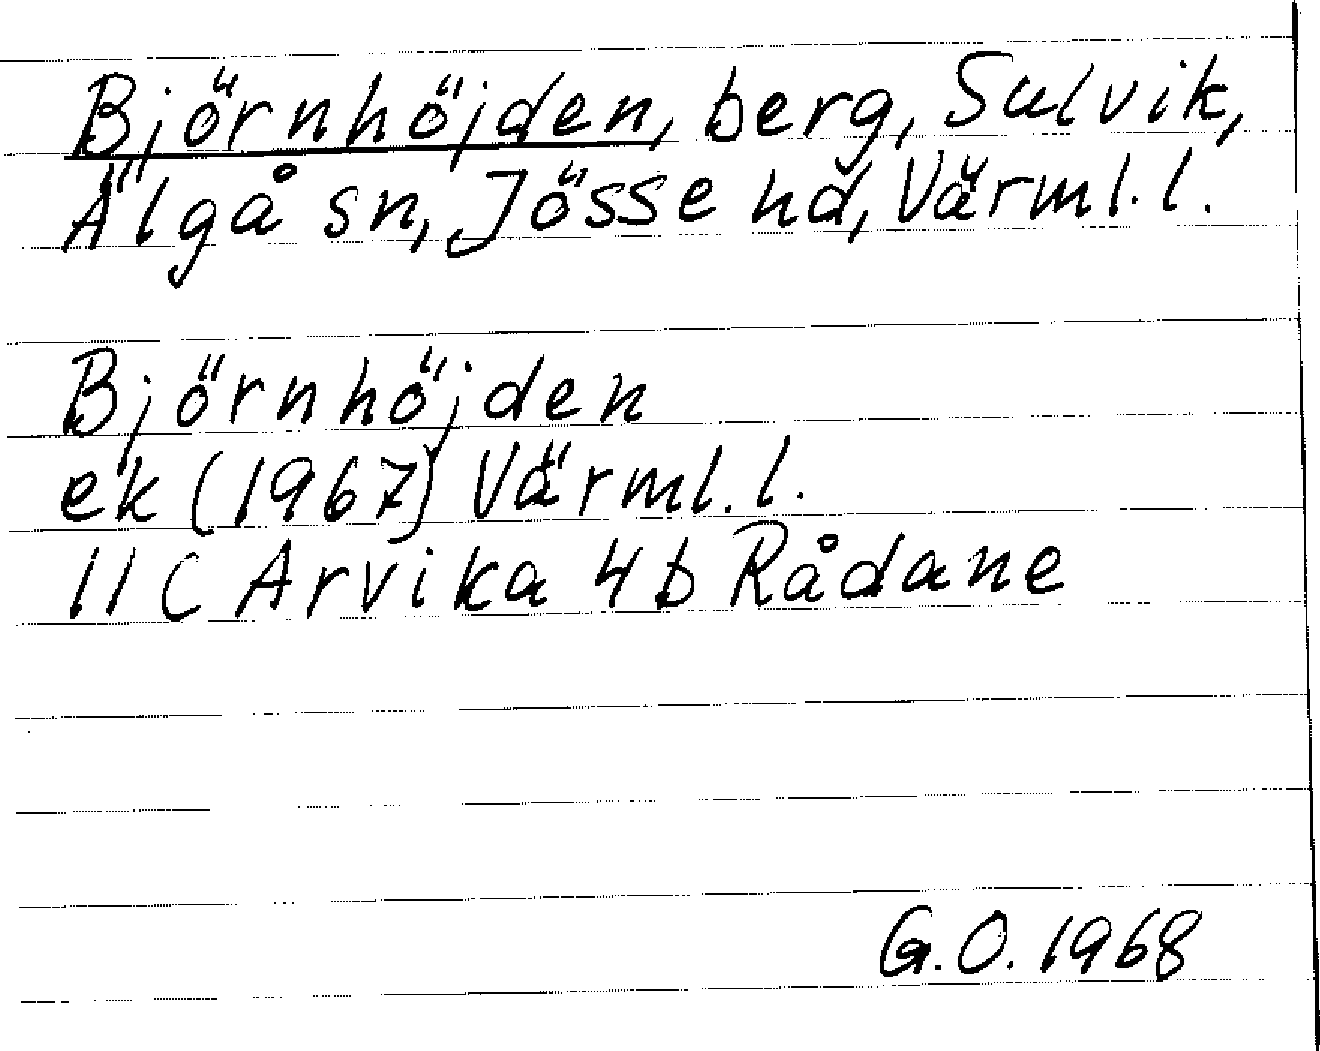 Björnhöjden, berg, Sulvik,
Älgå sn, Jösse hd, Värml. l.
Björnhöjden
ek (1967) Värml. l.
11 C Arvika 4 b Rådane
G. O. 1968